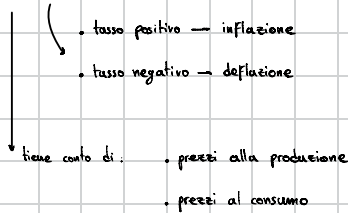 • tasso positivo — inflazione
• tasso negativo — deflazione
tiene conto di: • prezzi alla produzione
• prezzi al consumo